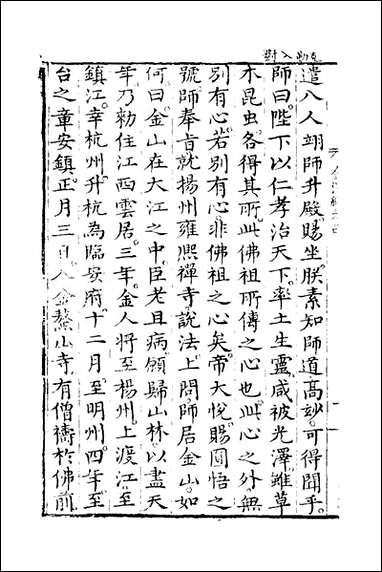 遣八人翊師升殿賜坐朕素知師道高妙可得聞乎
師曰陛下以仁孝治天下率土生靈咸被光澤雖草
木昆虫各得其所此佛祖所傳之心也此心之外無
別有心若別有心非佛祖之心矣帝大悅賜圓悟之
號師奉旨就揚州雍熙禪寺說法上問師居金山如
何曰金山在大江之中臣老且病願歸山林以盡天
年乃勑住江西雲居三年金人將至楊州上渡江至
鎮江幸杭州升杭為臨安府十二月至明州四年至
台之章安鎮正月三日入金鰲山寺有僧禱於佛前